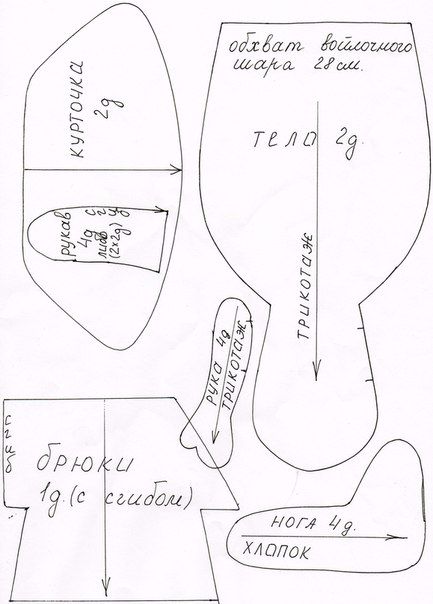 обхват войлочного
шара 28 см.
ТЕЛО 2д.
ТРИКОТАЖ
КУРТОЧКА
2д
рукав
4д
либо
(2х2д)
сгиб
РУКА 4д
ТРИКОТАЖ
сгиб
БРЮКИ
1д.(с сгибом)
НОГА 4д.
ХЛОПОК